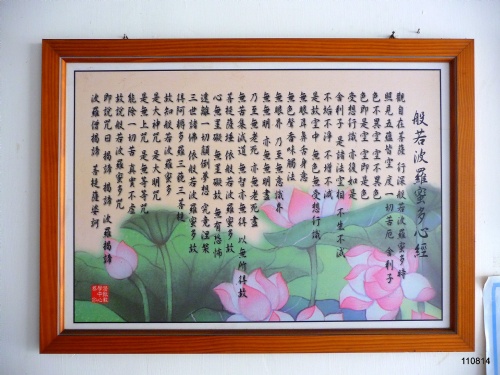 般若波羅蜜多心經
觀自在菩薩 行深般若波羅蜜多時
照見五蘊皆空 度一切苦厄 舍利子
色不異空 空不異色
色即是空 空即是色
受想行識 亦復如是
舍利子 是諸法空相 不生不滅
不垢不淨 不增不減
是故空中 無色 無受想行識
無眼耳鼻舌身意
無色聲香味觸法
無眼界 乃至無意識界
無無明 亦無無明盡
乃至無老死 亦無老死盡
無苦集滅道 無智亦無得 以無所得故
菩提薩埵 依般若波羅蜜多故
心無罣礙 無罣礙故 無有恐怖
遠離一切顛倒夢想 究竟涅槃
三世諸佛 依般若波羅蜜多故
得阿耨多羅三藐三菩提
故知般若波羅蜜多
是大神咒 是大明咒
是無上咒 是無等等咒
能除一切苦 真實不虛
故說般若波羅蜜多咒
即說咒曰 揭諦揭諦 波羅揭諦
波羅僧揭諦 菩提薩婆訶
110814